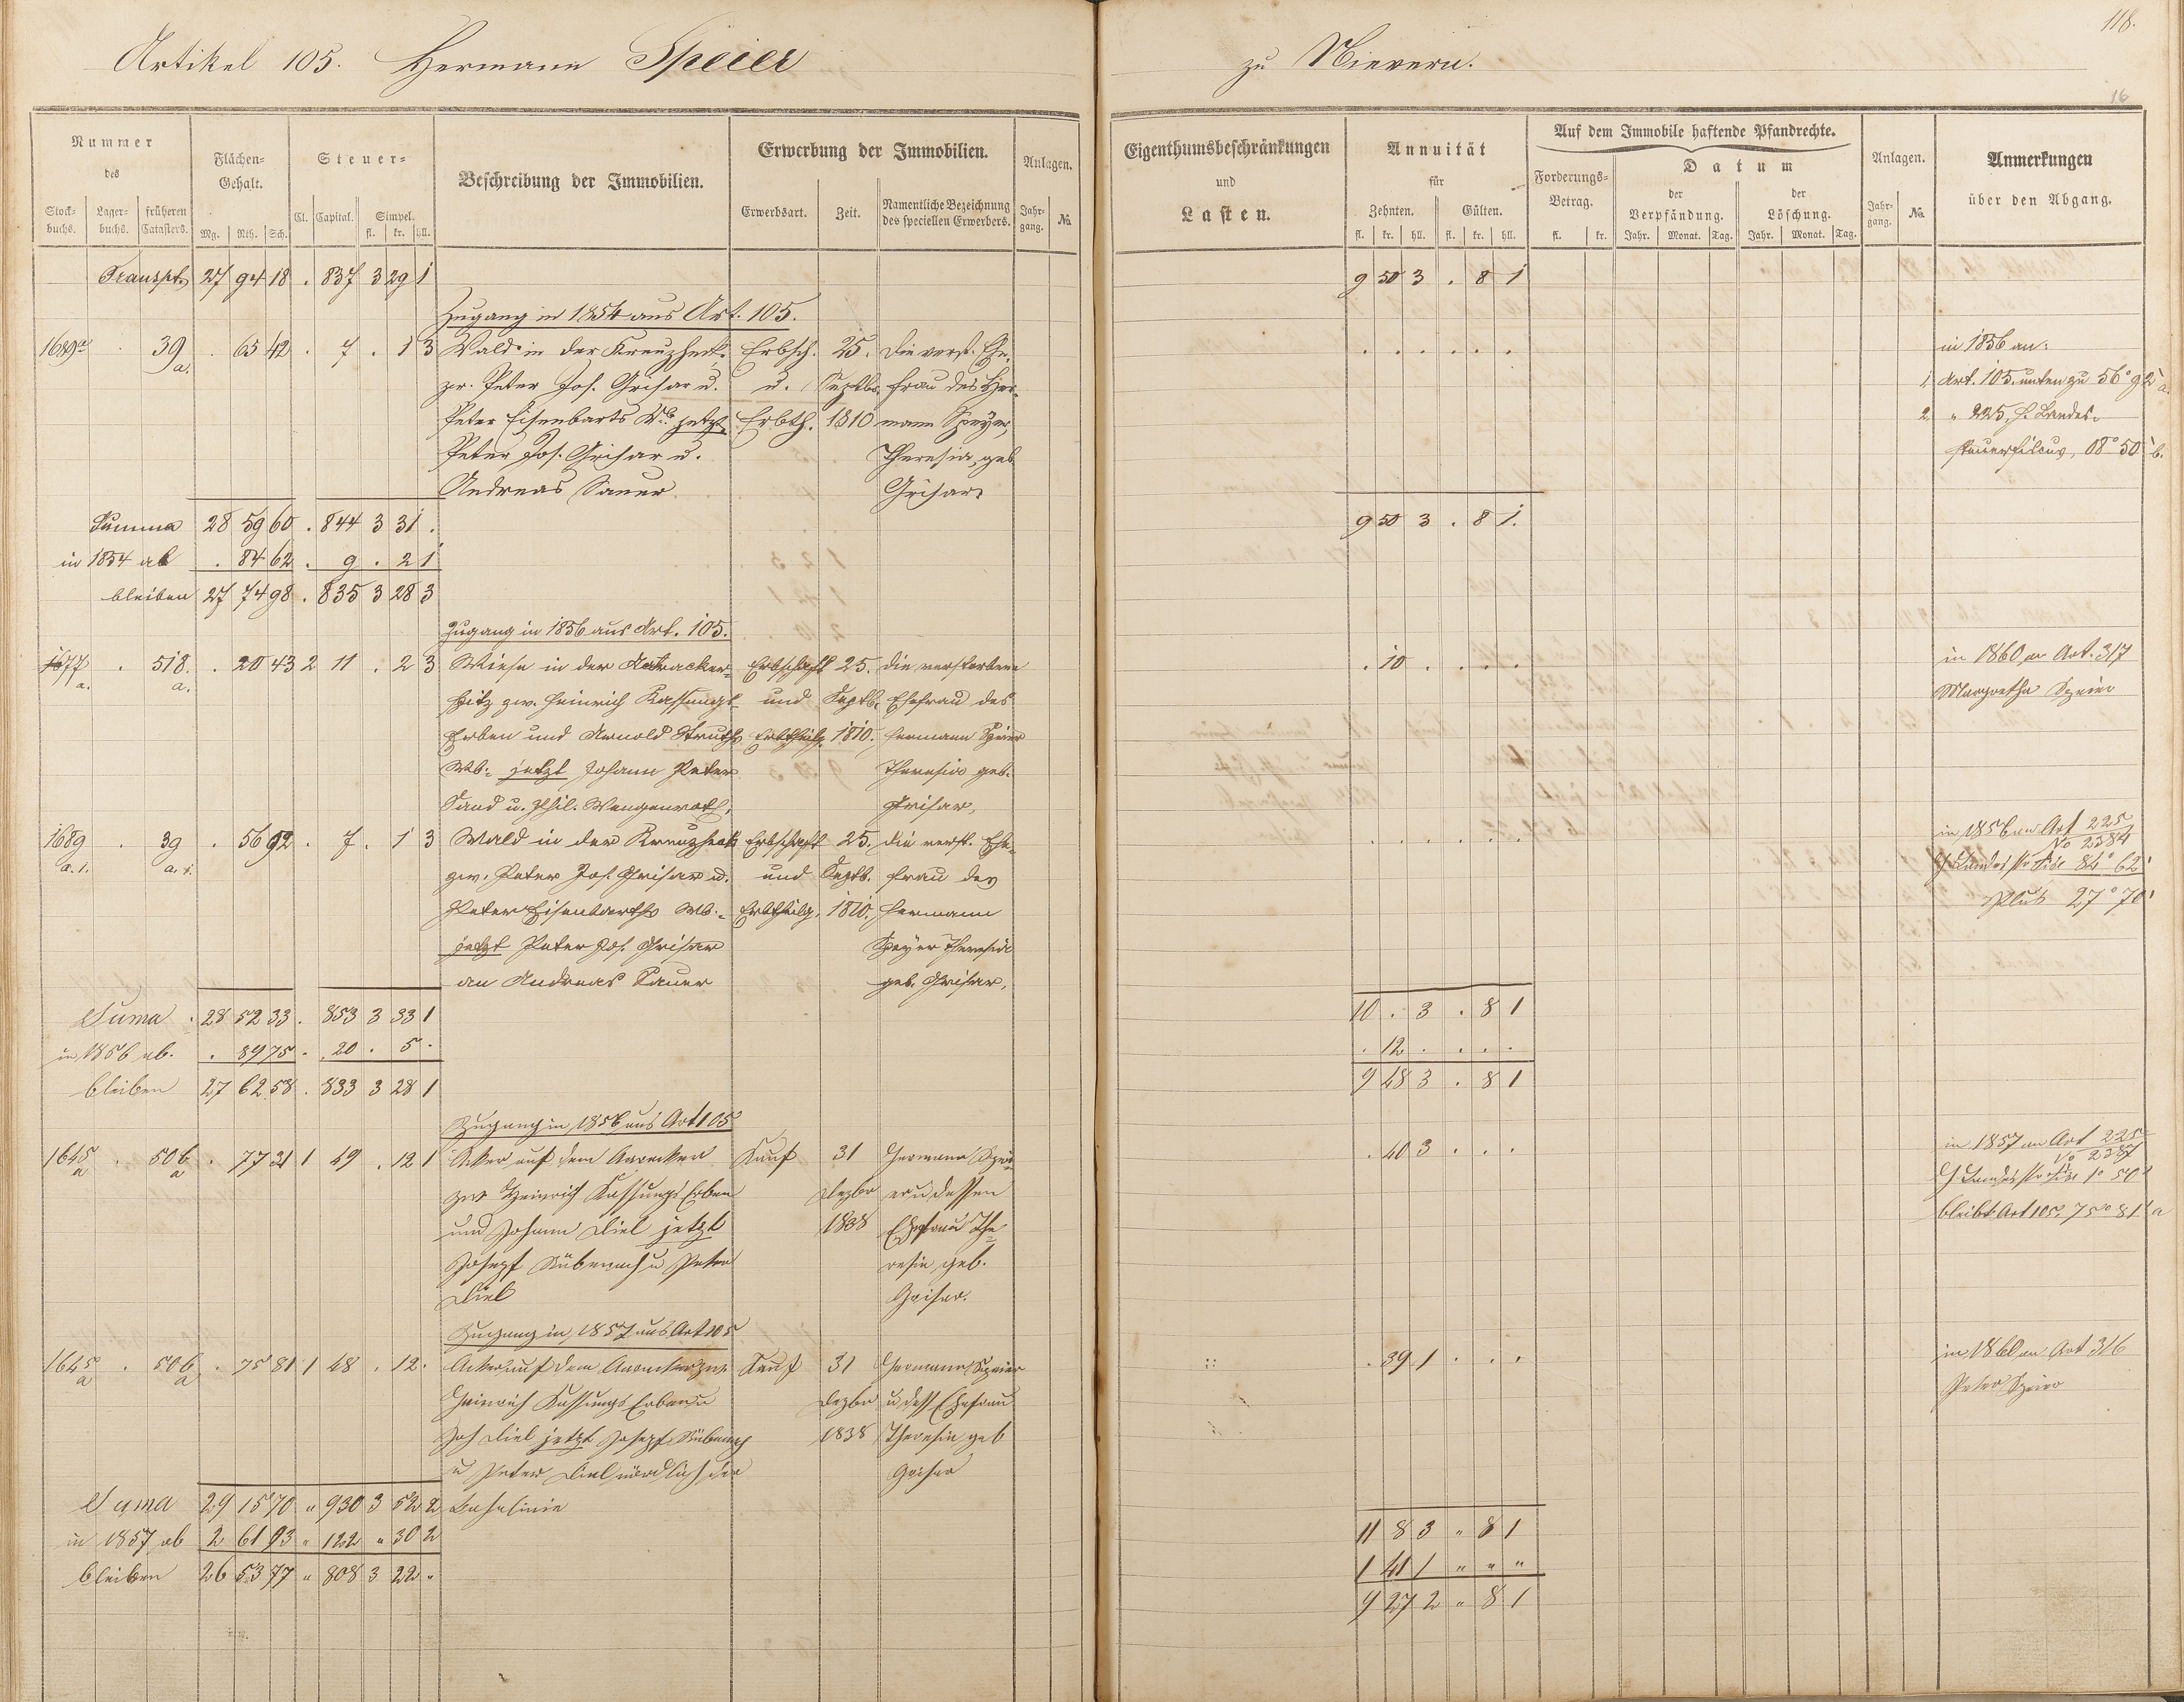 118.
Artikel 105. Hermann Speier
zu Nievern.
16
Nummer
des
Stock-
buchs.
Lager-
buchs.
früheren
Catasters.
Flächen-
Gehalt.
Mg. Rth. Sch.
Steuer-
Cl. Capital. Simpel.
fl. kr. hll.
Beschreibung der Immobilien.
Erwerbung der Immobilien.
Erwerbsart. Zeit. Namentliche Bezeichnung
des speciellen Erwerbers.
Anlagen.
Jahr-
gang. No.
Eigenthumsbeschränkungen
und
Lasten.
Annuität
für
Zehnten. Gülten.
fl. kr. hll. fl. kr. hll.
Auf dem Immobile haftende Pfandrechte.
Forderungs-
Betrag.
fl. kr.
Datum
der
Verpfändung.
Jahr. Monat. Tag.
der
Löschung.
Jahr. Monat. Tag.
Anlagen.
Jahr-
gang. No.
Anmerkungen
über den Abgang.
Transpt. 27 94 18 . 837 3 29 1 9 50 3 . 8 1
Zugang in 1854 aus Art. 105.
1689a . 39 a. . 65 42 . 7 . 1 3 Wald in der Kreuzheck. Erbsch. 25. die verst. Ehe- . . . . . . in 1856 an:
zw. Peter Jos. Grisar u. u. Septbr. frau des Her- 1. Art. 105. unten zu 56° 92' a.
Peter Eisenbarts Wb. jetzt Erbth. 1810 mann Speyer, 2. " 225, H. Landes-
Peter Jos. Grisar u. Theresia, geb. steuerfiscus, 08° 50' b.
Andreas Sauer Grisar.
Summa 28 59 60 . 844 3 31 . 9 50 3 . 8 1.
in 1854 ab . 84 62 . 9 . 2 1
bleiben 27 74 98 . 835 3 28 3
Zugang in 1856 aus Art. 105.
1677 a. . 518. a. . 20 43 2 11 . 2 3 Wiese in der Aaracker- Erbschaft 25. die verstorbene . 10 . . . . in 1860 an Art. 317
spitz zw. Heinrich Kassungs und Septb. Ehefrau des Margretha Speier
Erben und Arnold Struths Erbtheilg. 1810. Hermann Speier
Wb: jetzt Johann Peter Theresia geb.
Sand u. Phil. Wengenroth, Grisar,
1689 a. 1. . 39 a. 1. . 56 92 . 7 . 1 3 Wald in der Kreuzheck Erbschaft 25. die verst. Ehe- . . . . . . in 1856 an Art 225
No 2384
zw. Peter Jos. Grisar u. und Septb. frau des 84° 62'
Peter Eisenbarths Wb:- Erbtheilg. 1810. Hermann Plus 27° 70'
jetzt Peter Jos. Grisar Speyer Theresia
an Andreas Sauer geb. Grisar,
Suma . 28 52 33 . 853 3 33 1 10 . 3 . 8 1
in 1856 ab. . 89 75 . 20 . 5 . . 12 . . . .
bleiben 27 62 58 . 833 3 28 1 9 48 3 . 8 1
Zugang in 1856 aus Art 105
1645 a . 506 a . 77 31 1 49 . 12 1 Acker auf dem Aaracker Kauf 31 Hermann Spei- . 40 3 . . . in 1857 an Art 225
zw Heinrich Kassungs Erben Dezbr er u dessen 1° 50'
und Johann Diel jetzt 1838 Ehefrau The- bleibt Art 105. 75° 81' a
Joseph Kübenach u Peter resia geb.
Diel Grisar.
Zugang in 1857 aus Art 105
1645 a . 506 a . 75 81 1 48 . 12. Acker auf dem Aaracker zw Kauf 31 Hermann Speier . 39 1 . . . in 1860 an Art 316
Heinrich Kassungs Erben u Dezbr u dess Ehefrau Peter Speier
Joh Diel jetzt Joseph Kübenach 1838 Theresia geb
u Peter Diel nördlich der Grisar
Suma 29 15 70 " 930 3 52 2 Bahnlinie 11 8 3 " 8 1
in 1857 ab 2 61 93 " 122 " 30 2 1 41 1 " " "
bleiben 26 53 77 " 808 3 22 " 9 27 2 " 8 1